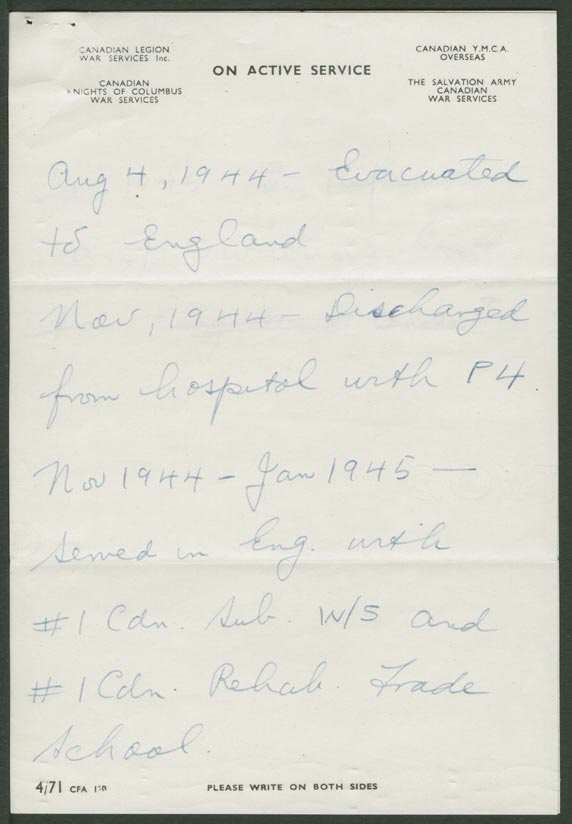 CANADIAN LEGION
WAR SERVICES Inc.
CANADIAN
KNIGHTS OF COLUMBUS
WAR SERVICES
ON ACTIVE SERVICE
CANADIAN Y.M.C.A.
OVERSEAS
THE SALVATION ARMY
CANADIAN
WAR SERVICES
Aug 4, 1944 - Evacuated
to England
Nov, 1944 - Discharged
from hospital with P4
Nov 1944 - Jan 1945 —
served in Eng. with
#1 Cdn. Sub. W/S and
#1 Cdn. Rehab. Trade
School.
4/71 CFA
PLEASE WRITE ON BOTH SIDES